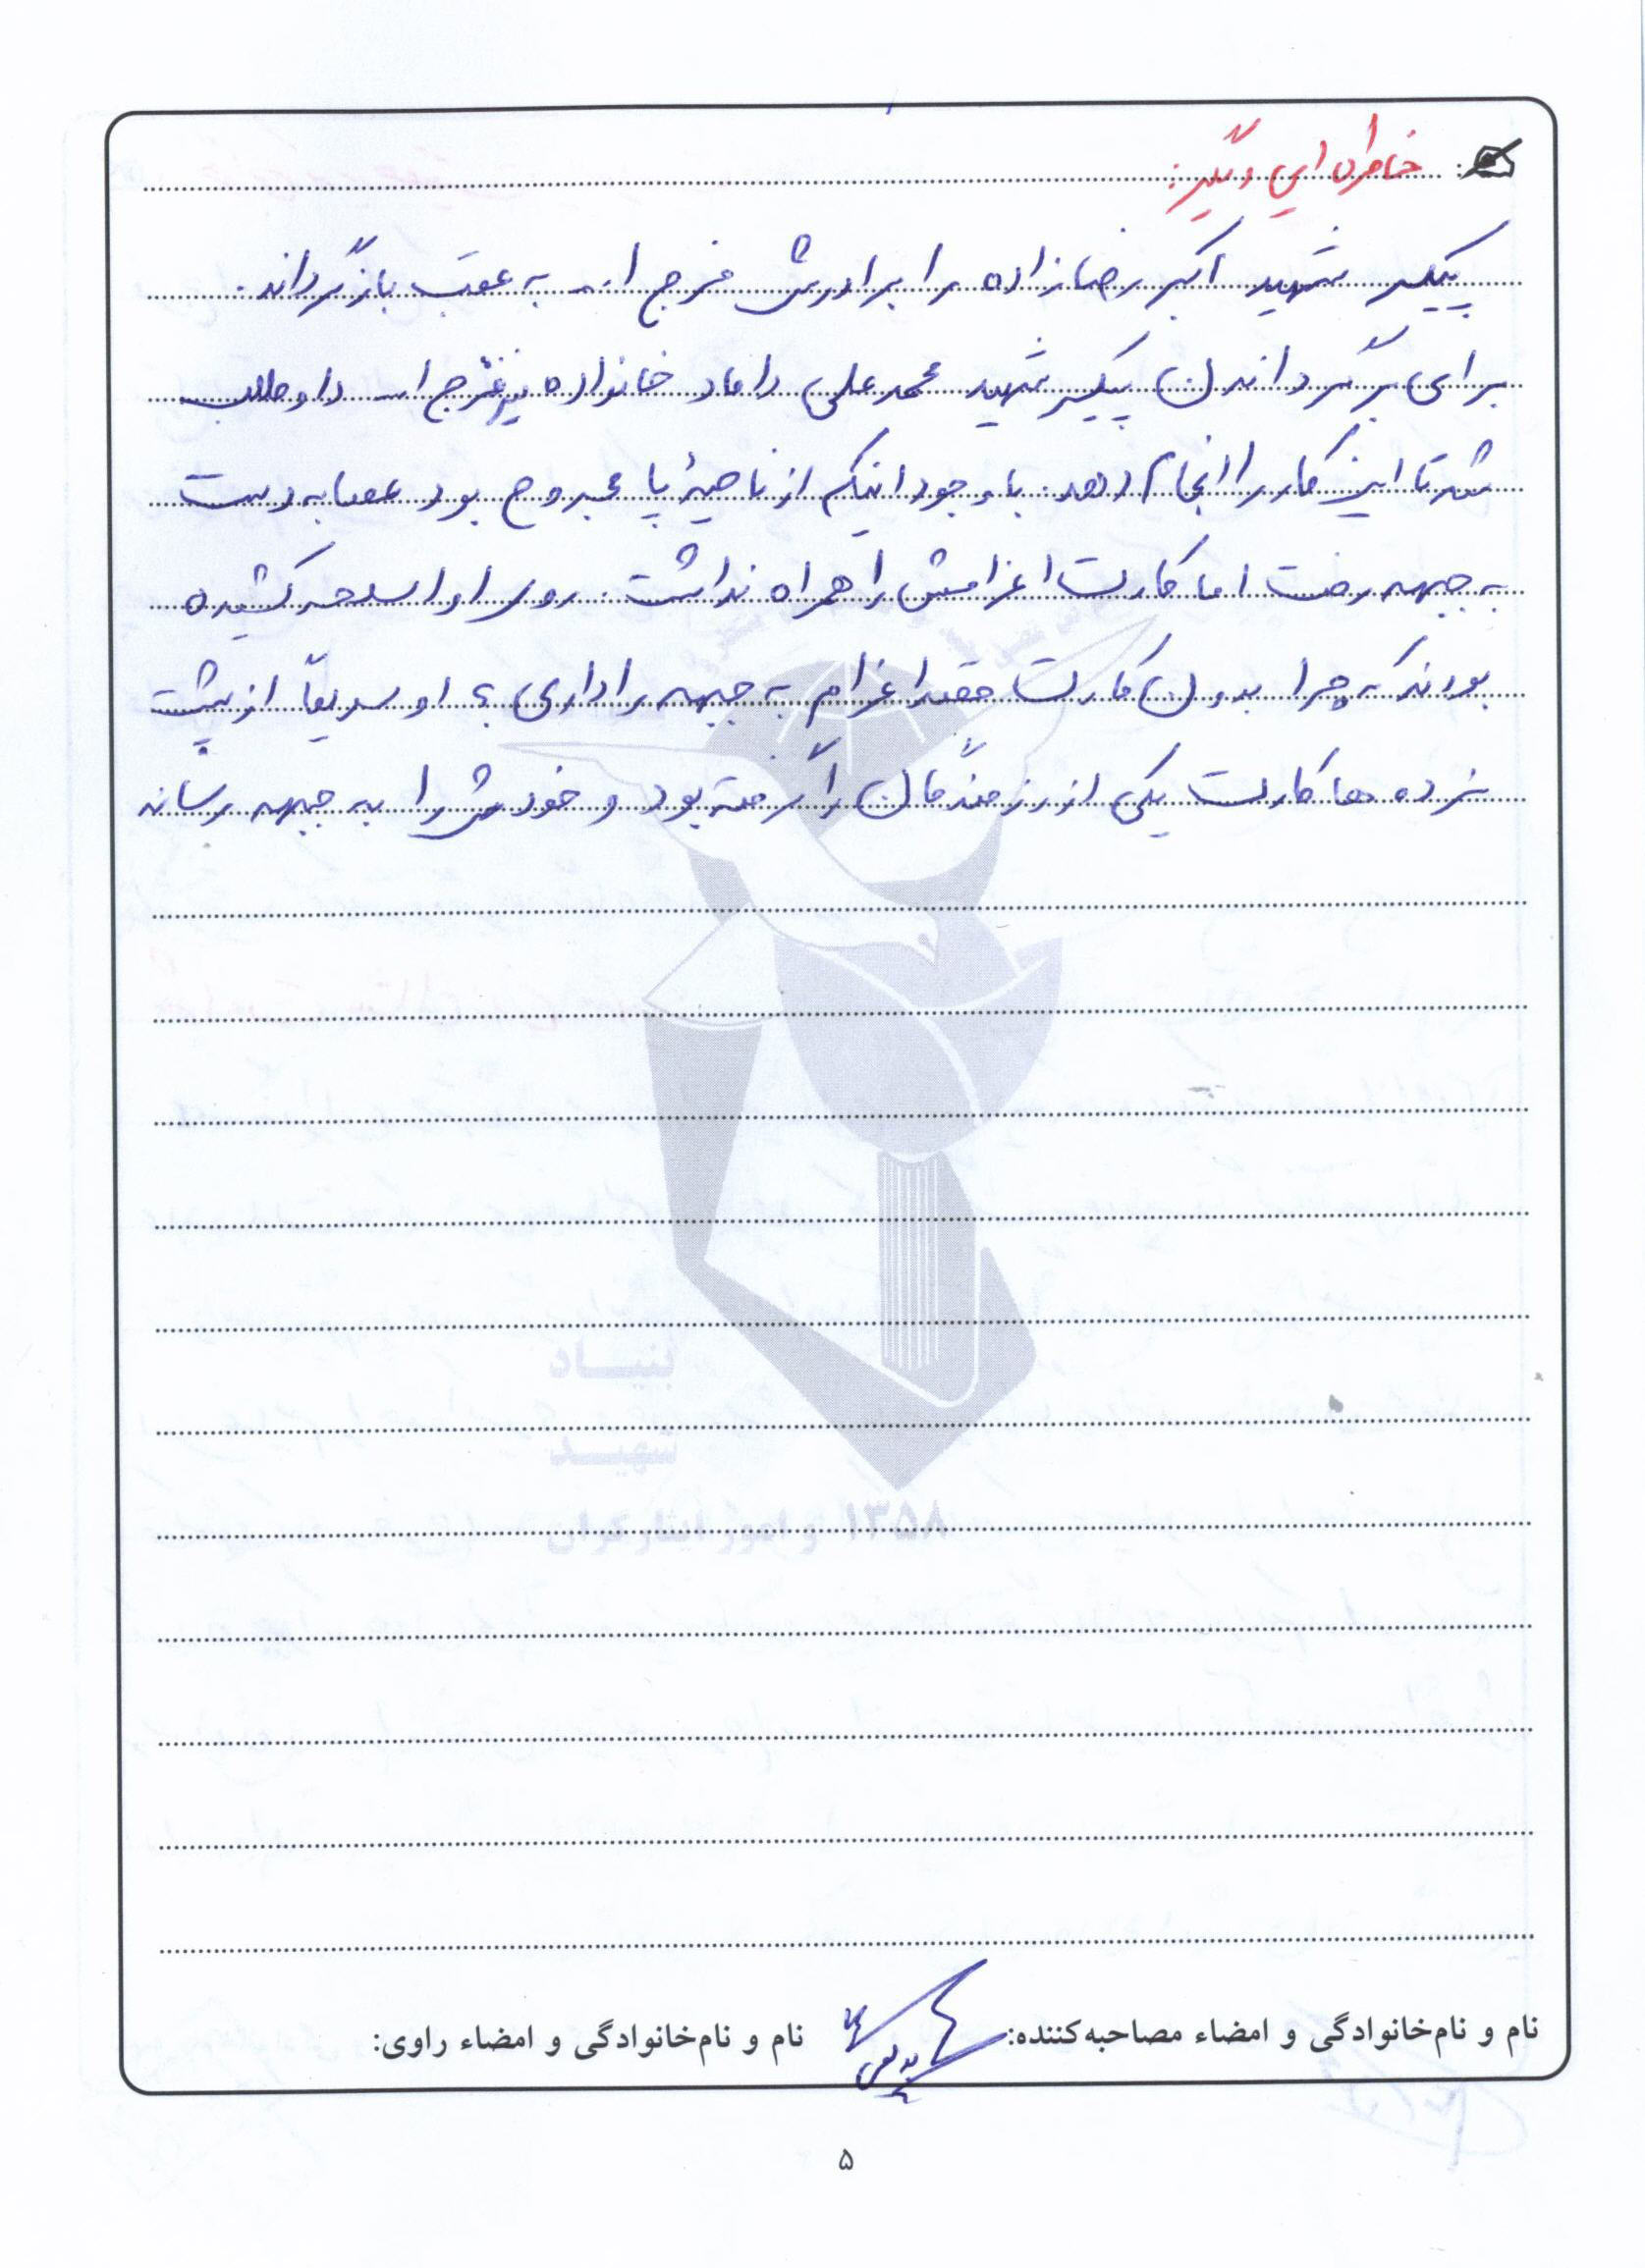 خاطره‌ای دیگر:
پیکر شهید اکبر رضازاده را برادرش فرج ا... به عقب بازگرداند.
برای برگرداندن پیکر شهید محمدعلی داماد خانواده نیز فرج ا... داوطلب
شد تا این کار را انجام دهد. با وجود اینکه از ناحیهٔ پا مجروح بود عصا به دست
به جبهه رفت اما کارت اعزامش را همراه نداشت. روی او اسلحه کشیده
بودند که چرا بدون کارت قصد اعزام به جبهه را داری؟ او سریعاً از پشت
نرده ها کارت یکی از رزمندگان را گرفته بود و خودش را به جبهه رساند
بنیاد
شهید
و امور ایثارگران ۱۳۵۸
نام و نام‌خانوادگی و امضاء مصاحبه‌کننده: نام و نام‌خانوادگی و امضاء راوی:
۵